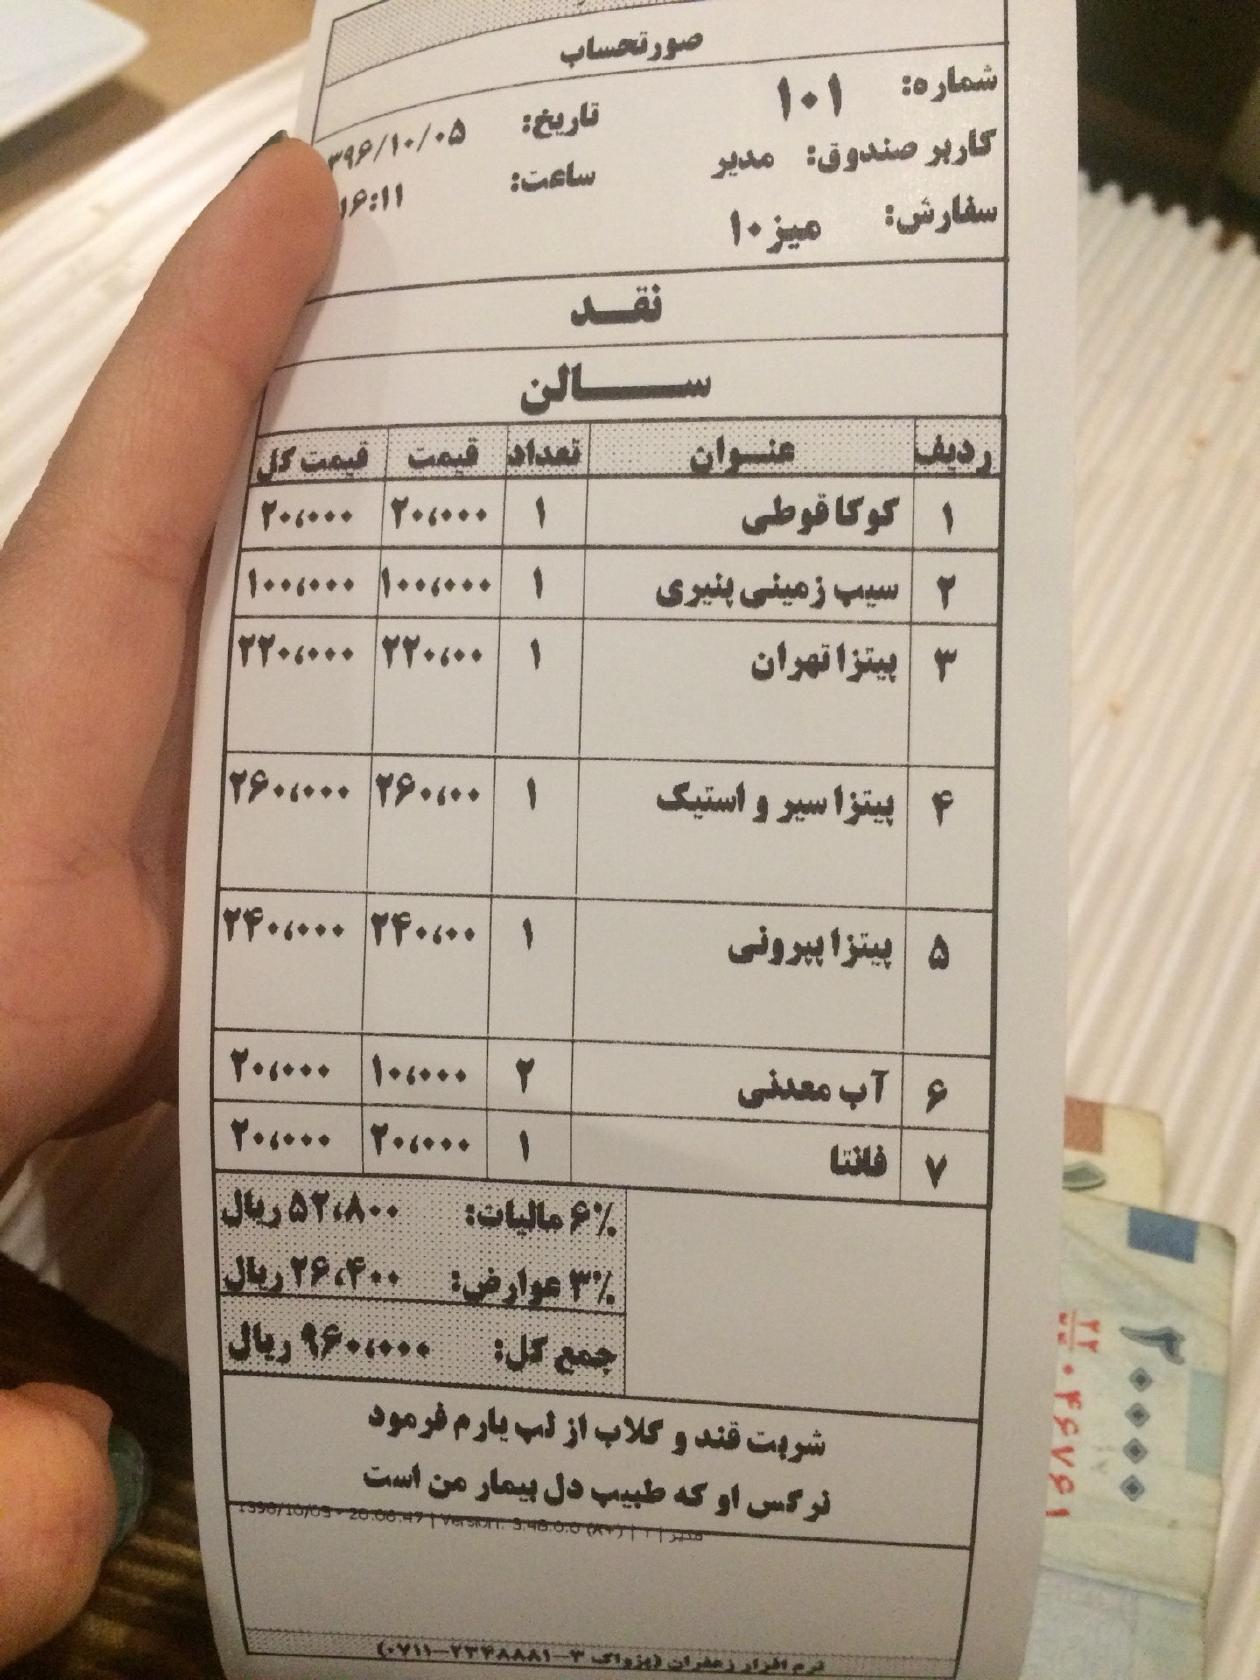 صورتحساب
شماره: ۱۰۱
تاریخ: ۳۹۶/۱۰/۰۵
کاربر صندوق: مدیر
ساعت: ۱۶:۱۱
سفارش: میز۱۰
نقد
سالن
ردیف عنوان تعداد قیمت قیمت کل
۱ کوکا قوطی ۱ ۲۰،۰۰۰ ۲۰،۰۰۰
۲ سیب زمینی پنیری ۱ ۱۰۰،۰۰۰ ۱۰۰،۰۰۰
۳ پیتزا تهران ۱ ۲۲۰،۰۰ ۲۲۰،۰۰۰
۴ پیتزا سیر و استیک ۱ ۲۶۰،۰۰ ۲۶۰،۰۰۰
۵ پیتزا پپرونی ۱ ۲۴۰،۰۰ ۲۴۰،۰۰۰
۶ آب معدنی ۲ ۱۰،۰۰۰ ۲۰،۰۰۰
۷ فانتا ۱ ۲۰،۰۰۰ ۲۰،۰۰۰
۶٪ مالیات: ۵۲،۸۰۰ ریال
۳٪ عوارض: ۲۶،۴۰۰ ریال
جمع کل: ۹۶۰،۰۰۰ ریال
شربت قند و گلاب از لب یارم فرمود
نرگس او که طبیب دل بیمار من است
1396/10/05 - 20:06:47 | Version: 3.48.0.0 (X+) | ۱ | مدیر
نرم افزار زعفران (پژواک ۳-۲۳۴۸۸۸۱-۰۷۱۱)
۲۲
۰۴۶۷۶۱